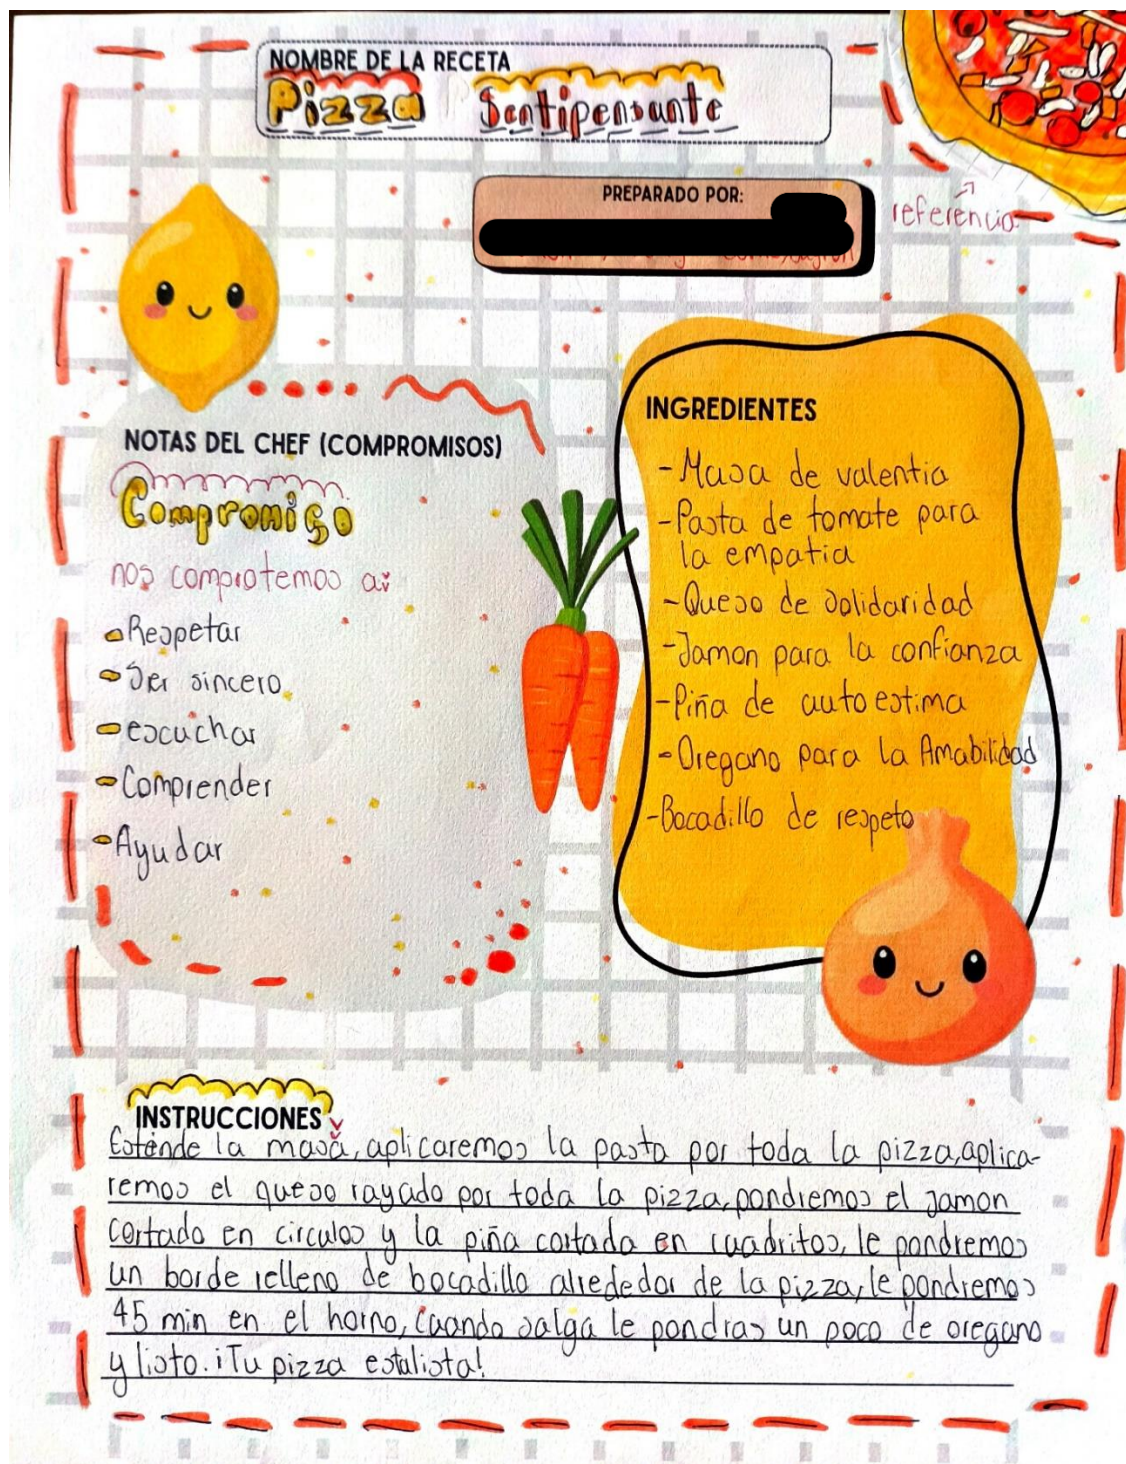 NOMBRE DE LA RECETA
Pizza Sentipensante
PREPARADO POR:
referencia
NOTAS DEL CHEF (COMPROMISOS)
Compromiso
nos comprotemos a:
- Respetar
- Ser sincero
- escuchar
- Comprender
- Ayudar
INGREDIENTES
- Masa de valentia
- Pasta de tomate para
la empatia
- Queso de solidaridad
- Jamon para la confianza
- Piña de autoestima
- Oregano para la Amabilidad
- Bocadillo de respeto
INSTRUCCIONES
Estende la masa, aplicaremos la pasta por toda la pizza, aplica-
remos el queso rayado por toda la pizza, pondremos el jamon
cortado en circulos y la piña cortada en cuadritos, le pondremos
un borde relleno de bocadillo alrededor de la pizza, le pondremos
45 min en el horno, Cuando salga le pondras un poco de oregano
y listo. ¡Tu pizza estalista!